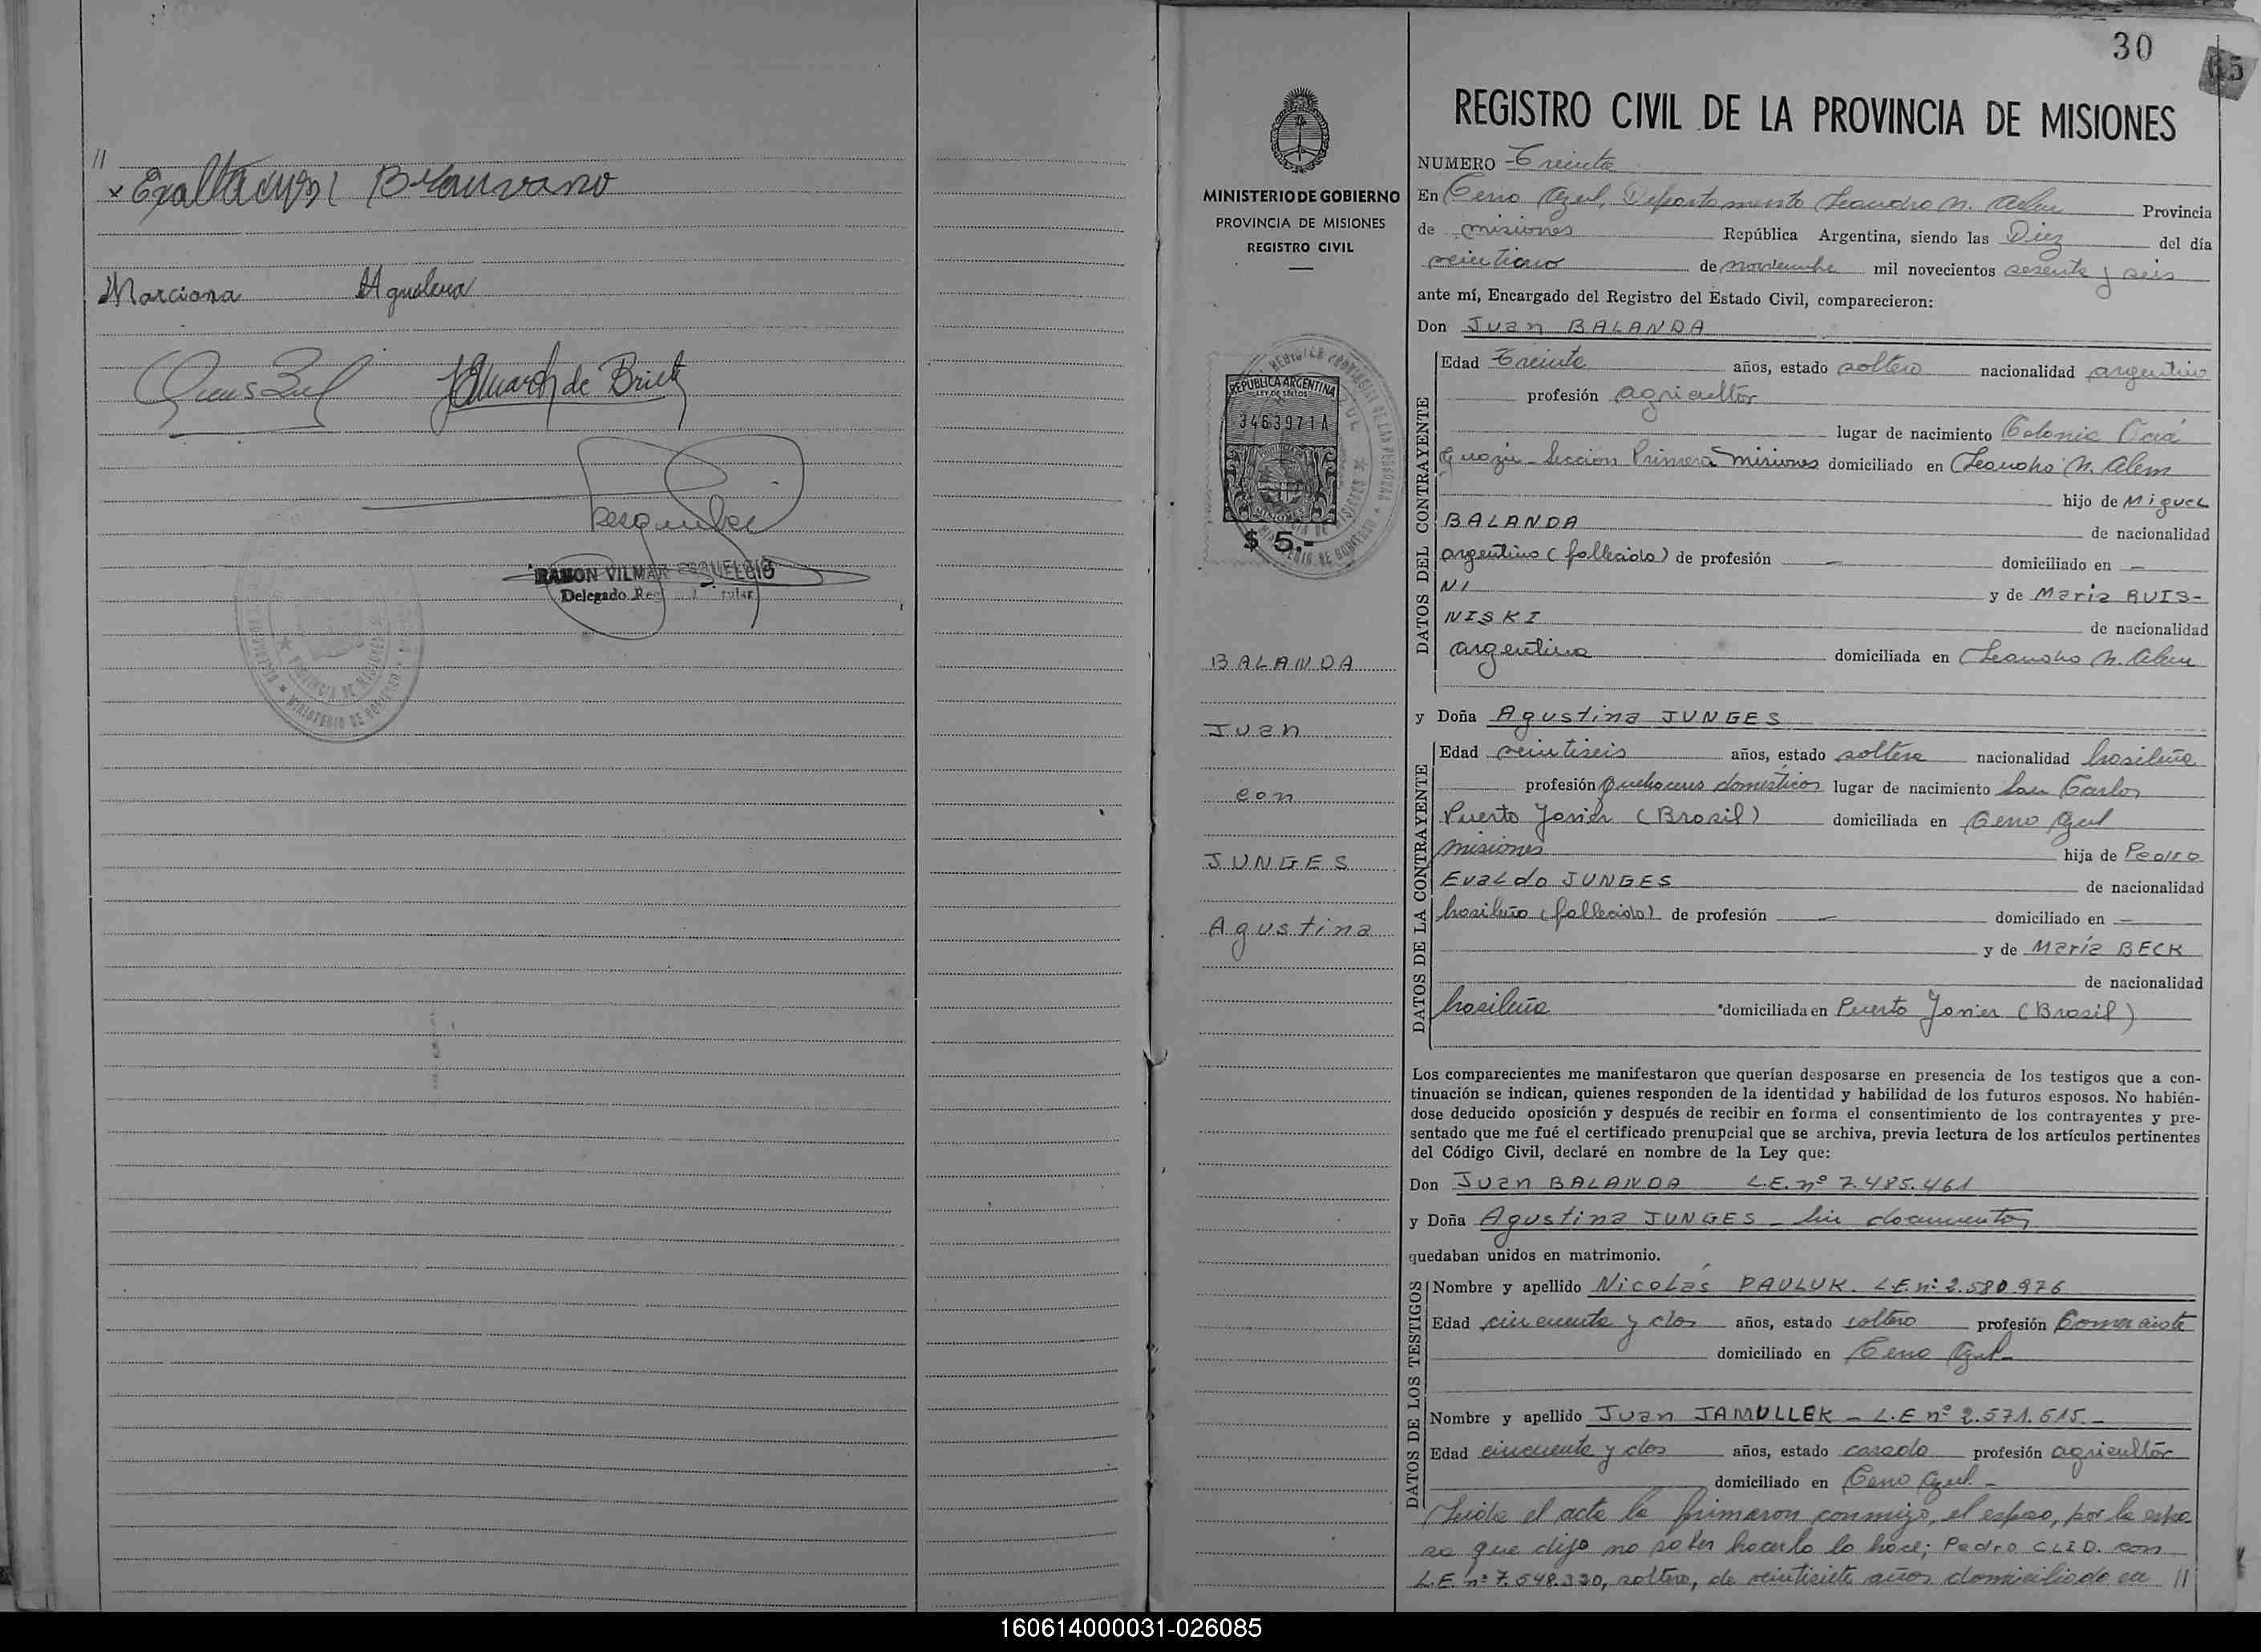 //
x Exaltacion Brauvano
Marciana Aguilera
Eduardo de Brick
RAMON VILMAR ESQUELGIO
Delegado Reg Titular
PROVINCIA DE MISIONES
MINISTERIO DE GOBIERNO
30
65
REGISTRO CIVIL DE LA PROVINCIA DE MISIONES
MINISTERIO DE GOBIERNO
PROVINCIA DE MISIONES
REGISTRO CIVIL
REPUBLICA ARGENTINA
LEY DE SELLOS
3463971A
MISIONES
$ 5.-
BALANDA
Juan
con
JUNGES
Agustina
NUMERO Treinta
En Cerro Azul, Departamento Leandro N. Alem Provincia
de Misiones República Argentina, siendo las Diez del día
veintiuno de noviembre mil novecientos sesenta y seis
ante mí, Encargado del Registro del Estado Civil, comparecieron:
Don Juan BALANDA
DATOS DEL CONTRAYENTE
Edad Treinta años, estado soltero nacionalidad argentino
profesión agricultor
lugar de nacimiento Colonia Caá
Guazú - Sección Primera Misiones domiciliado en Leandro N. Alem
hijo de Miguel
BALANDA de nacionalidad
argentino (fallecido) de profesión — domiciliado en —
NI y de María RUIS-
NISKI de nacionalidad
argentina domiciliada en Leandro N. Alem
y Doña Agustina JUNGES
DATOS DE LA CONTRAYENTE
Edad veintiseis años, estado soltera nacionalidad brasileña
profesión Quehaceres domésticos lugar de nacimiento San Carlos
Puerto Javier (Brasil) domiciliada en Cerro Azul
Misiones hija de Pedro
Evaldo JUNGES de nacionalidad
brasileño (fallecido) de profesión — domiciliado en —
y de María BECK
de nacionalidad
brasileña domiciliada en Puerto Javier (Brasil)
Los comparecientes me manifestaron que querían desposarse en presencia de los testigos que a con-
tinuación se indican, quienes responden de la identidad y habilidad de los futuros esposos. No habién-
dose deducido oposición y después de recibir en forma el consentimiento de los contrayentes y pre-
sentado que me fué el certificado prenupcial que se archiva, previa lectura de los artículos pertinentes
del Código Civil, declaré en nombre de la Ley que:
Don Juan BALANDA L.E. nº 7.485.461
y Doña Agustina JUNGES - Sin documentos
quedaban unidos en matrimonio.
DATOS DE LOS TESTIGOS
Nombre y apellido Nicolás PAULUK. L.E. nº 2.580.976
Edad cincuenta y dos años, estado soltero profesión Comerciante
domiciliado en Cerro Azul -
Nombre y apellido Juan JAMULLEK - L.E nº 2.571.615.-
Edad cincuenta y dos años, estado casado profesión agricultor
domiciliado en Cerro Azul. -
Leída el acta la firmaron conmigo, el esposo, por la espo-
sa que dijo no saber hacerlo lo hace; Pedro CLID. con
L.E. nº 7.548.320, soltero, de veintisiete años domiciliado en //
160614000031-026085